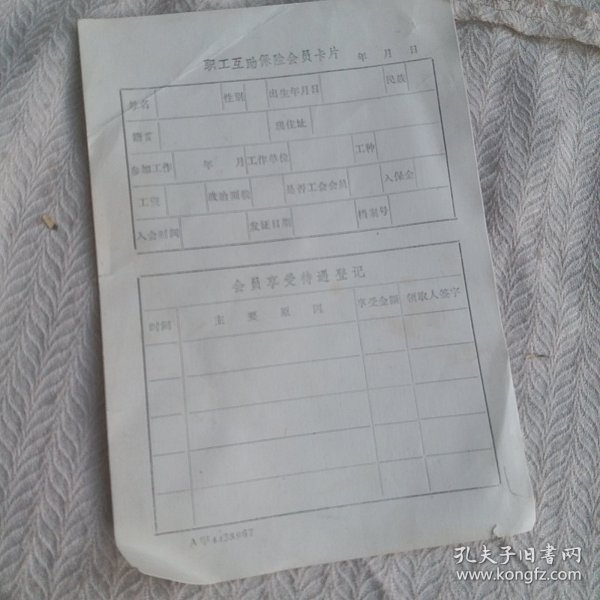 职工互助保险会员卡片 年 月 日
姓名 性别 出生年月日 民族
籍贯 现住址
参加工作 年 月 工作单位 工种
工资 政治面貌 是否工会会员 入保金
入会时间 发证日期 档案号
会员享受待遇登记
时间 主要原因 享受金额 领取人签字
孔夫子旧书网
www.kongfz.com